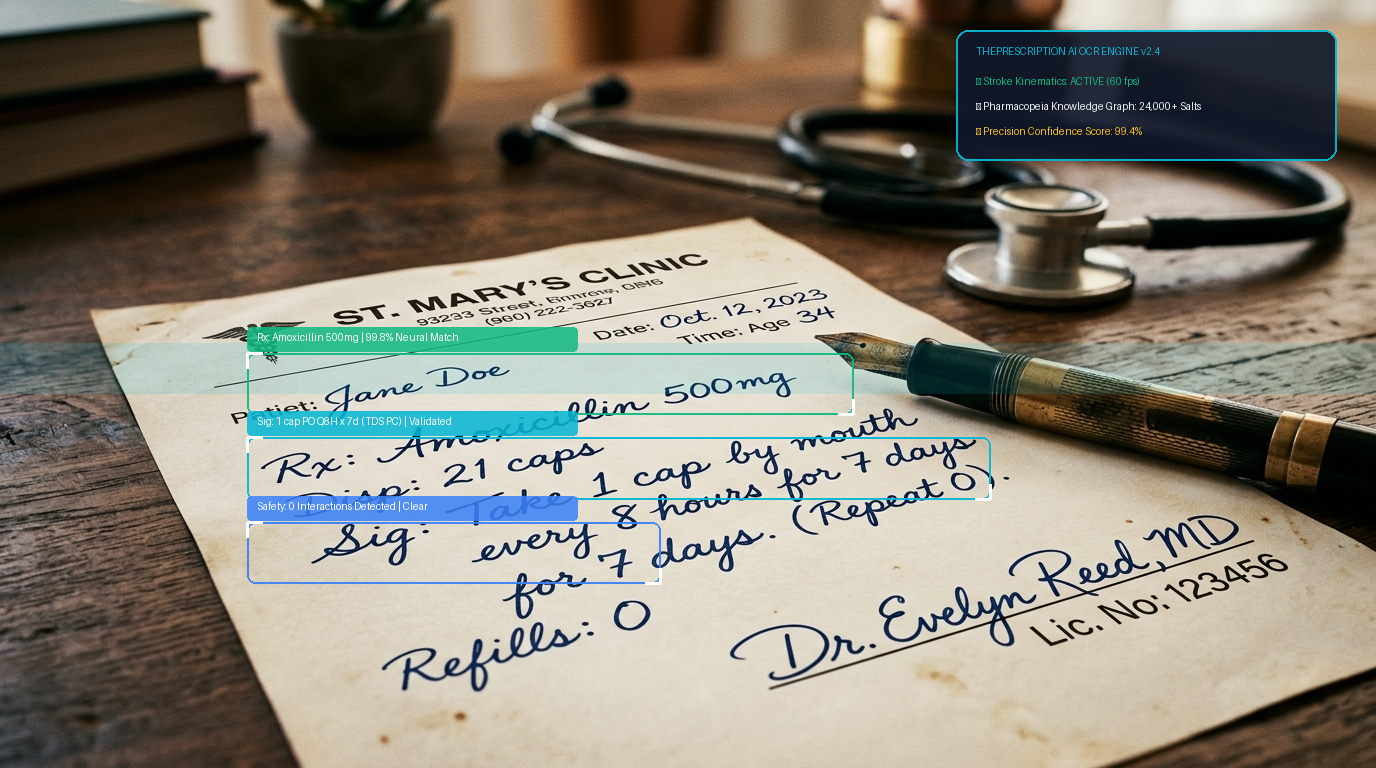 THEPRESCRIPTION AI OCR ENGINE v2.4
Stroke Kinematics: ACTIVE (60 fps)
Pharmacopeia Knowledge Graph: 24,000+ Salts
Precision Confidence Score: 99.4%
ST. MARY'S CLINIC
93233 Street,
(960) 222-3627
Date: Oct. 12, 2023
Time: Age 34
Rx: Amoxicillin 500mg | 99.8% Neural Match
Patiet: Jane Doe
Sig: 1 cap PO Q8H x 7d (TDS PC) | Validated
Rx: Amoxicillin 500mg
Disp: 21 caps
Safety: 0 Interactions Detected | Clear
Sig: Take 1 cap by mouth
every 8 hours for 7 days
for 7 days. (Repeat 0).
Refills: 0
Dr. Evelyn Reed, MD
Lic. No: 123456